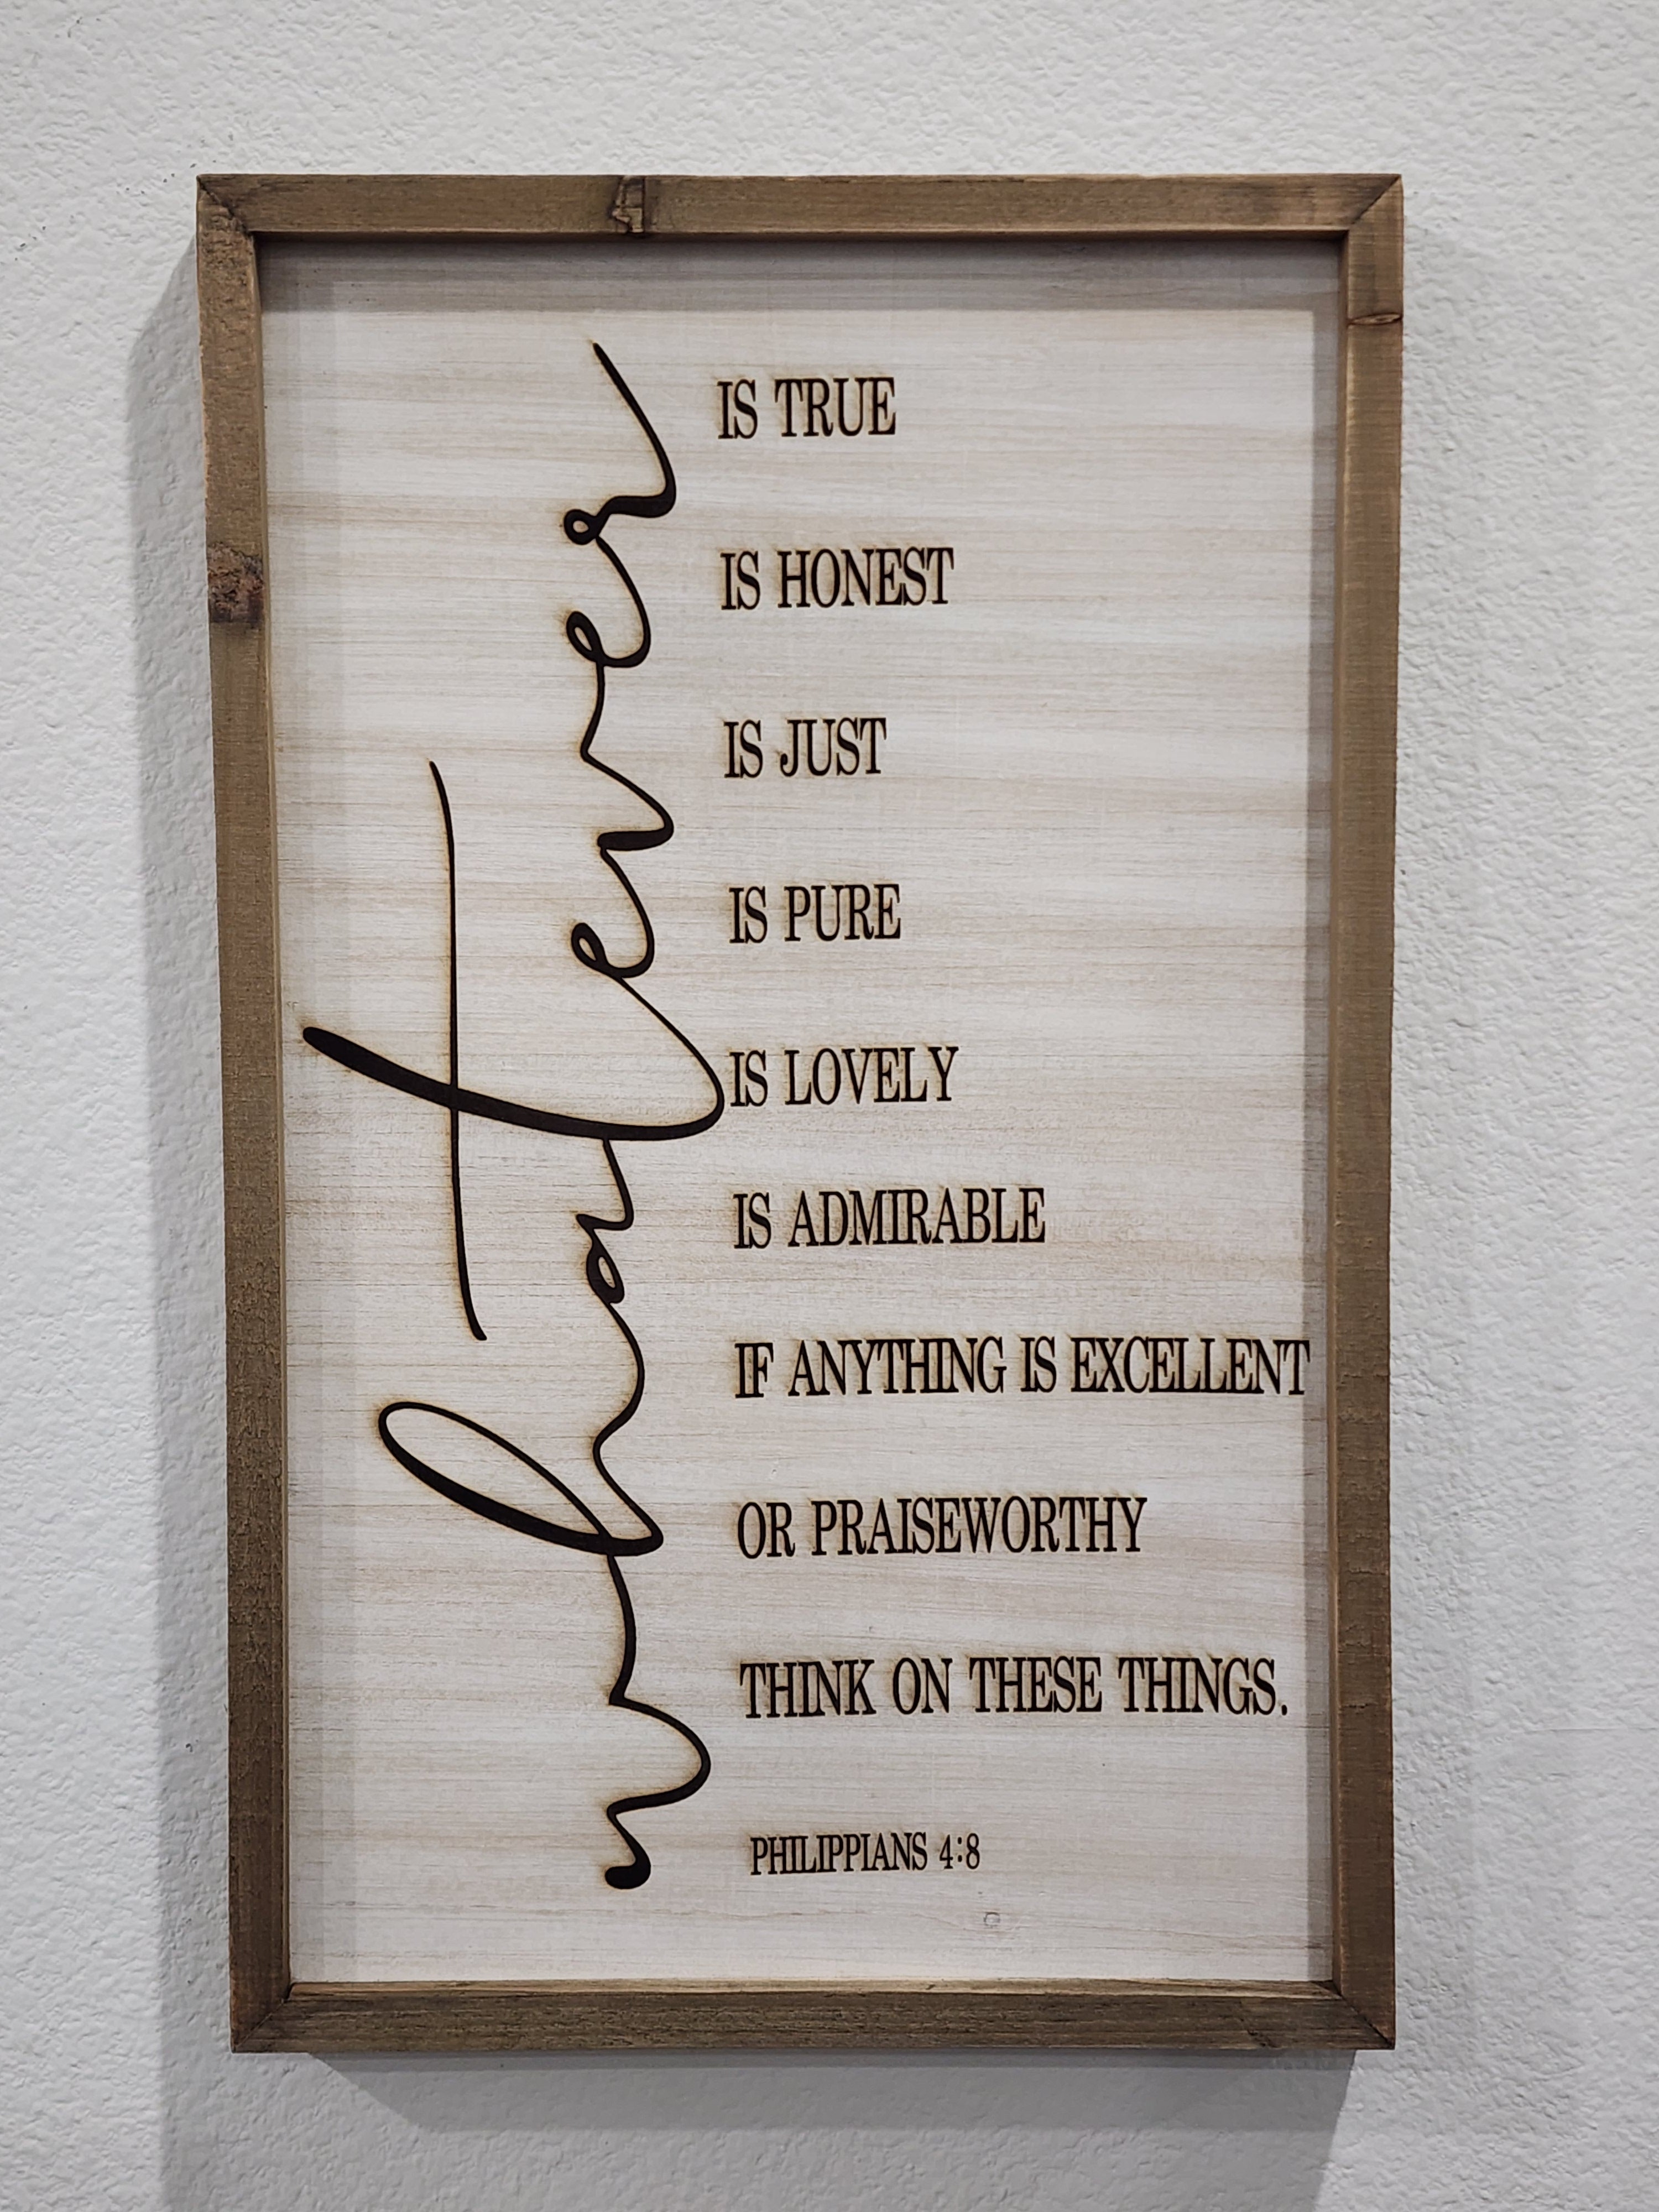 whatever
IS TRUE
IS HONEST
IS JUST
IS PURE
IS LOVELY
IS ADMIRABLE
IF ANYTHING IS EXCELLENT
OR PRAISEWORTHY
THINK ON THESE THINGS.
PHILIPPIANS 4:8